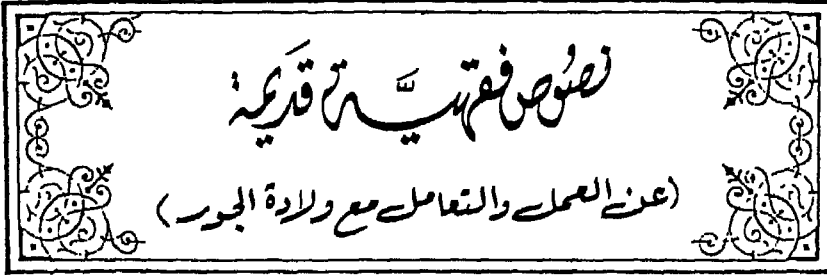 نصُوص فقهيَّة قدَيمة
(عن العمل والتعامل مع ولادة الجور)